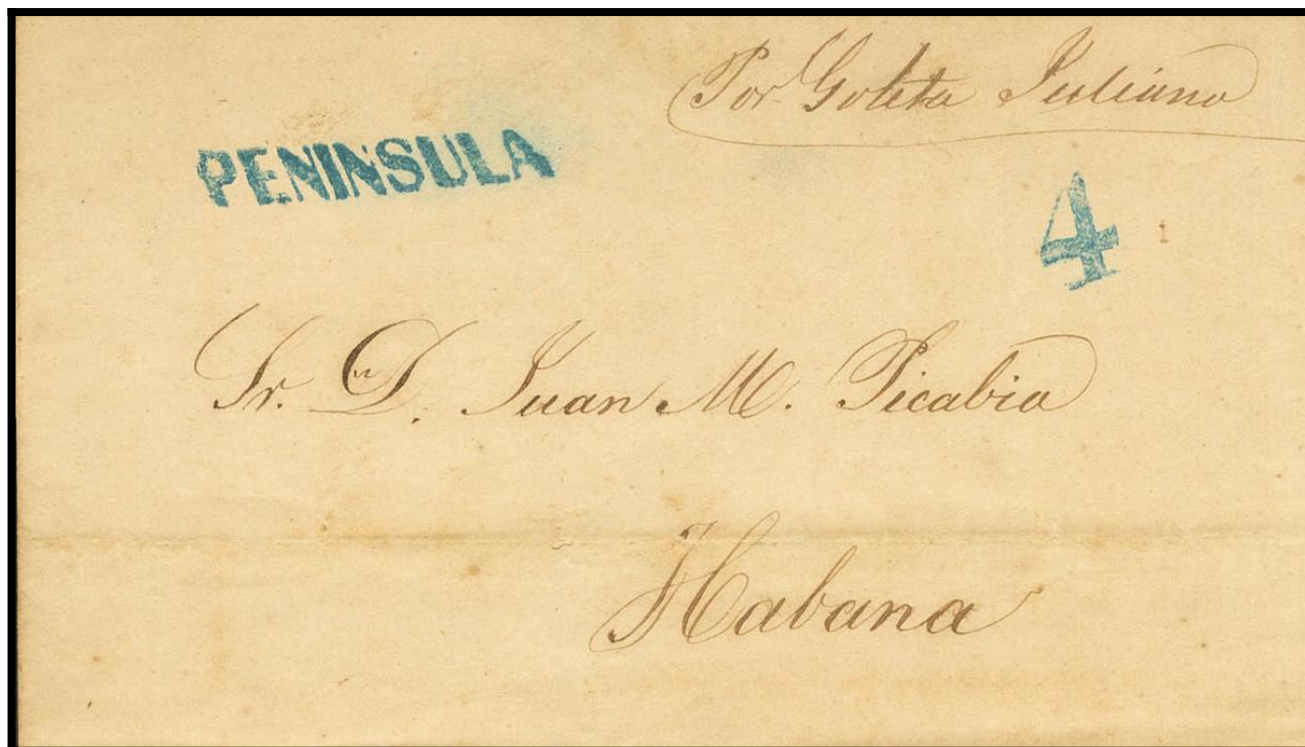 Por Goleta Juliana
PENINSULA
4
Sr. Dn. Juan M. Picabia
Habana